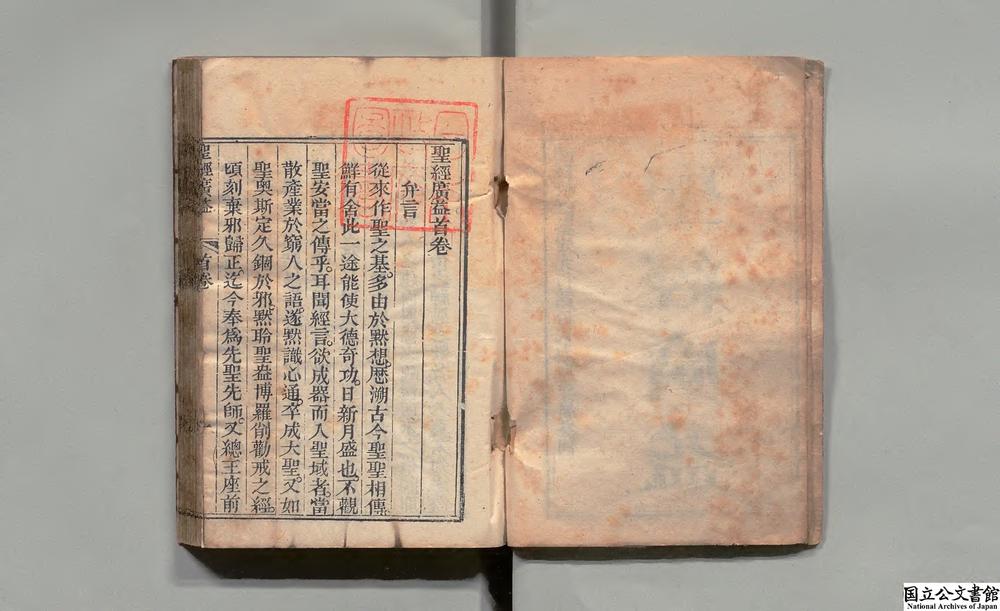 聖經廣益首卷
弁言
從來作聖之基。多由於默想。歷溯古今聖聖相傳
鮮有舍此一途能使大德奇功。日新月盛也。不觀
聖安當之傳乎。耳聞經言。欲成器而入聖域者。當
散產業於窮人之語。遂默識心通。卒成大聖。又如
聖奧斯定久錮於邪。默聆聖益博羅削勸戒之經。
頃刻棄邪歸正。迄今奉為先聖先師。又總王座前
聖經廣益
首卷
国立公文書館
National Archives of Japan